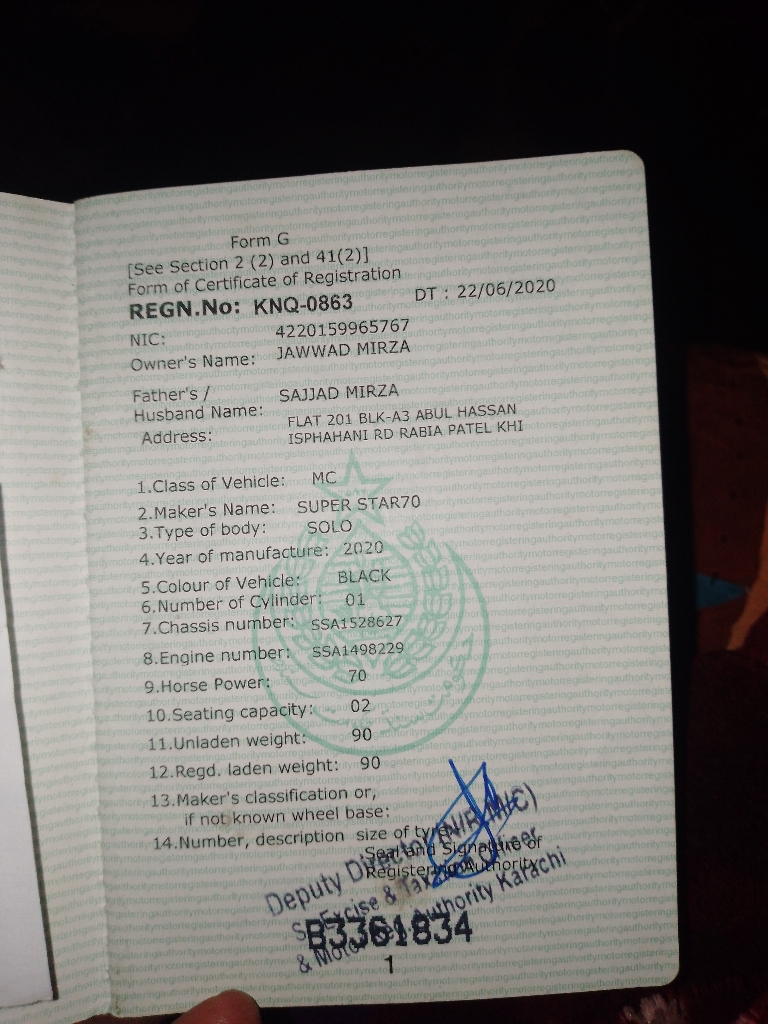 Form G
[See Section 2 (2) and 41(2)]
Form of Certificate of Registration
REGN.No: KNQ-0863 DT : 22/06/2020
NIC: 4220159965767
Owner's Name: JAWWAD MIRZA
Father's /
Husband Name: SAJJAD MIRZA
Address: FLAT 201 BLK-A3 ABUL HASSAN
ISPHAHANI RD RABIA PATEL KHI
1.Class of Vehicle: MC
2.Maker's Name: SUPER STAR70
3.Type of body: SOLO
4.Year of manufacture: 2020
5.Colour of Vehicle: BLACK
6.Number of Cylinder: 01
7.Chassis number: SSA1528627
8.Engine number: SSA1498229
9.Horse Power: 70
10.Seating capacity: 02
11.Unladen weight: 90
12.Regd. laden weight: 90
13.Maker's classification or,
if not known wheel base:
14.Number, description size of tyre
Seal and Signature of
Registering Authority
Deputy Director
Excise & Taxation
Authority Karachi
B3361834
1